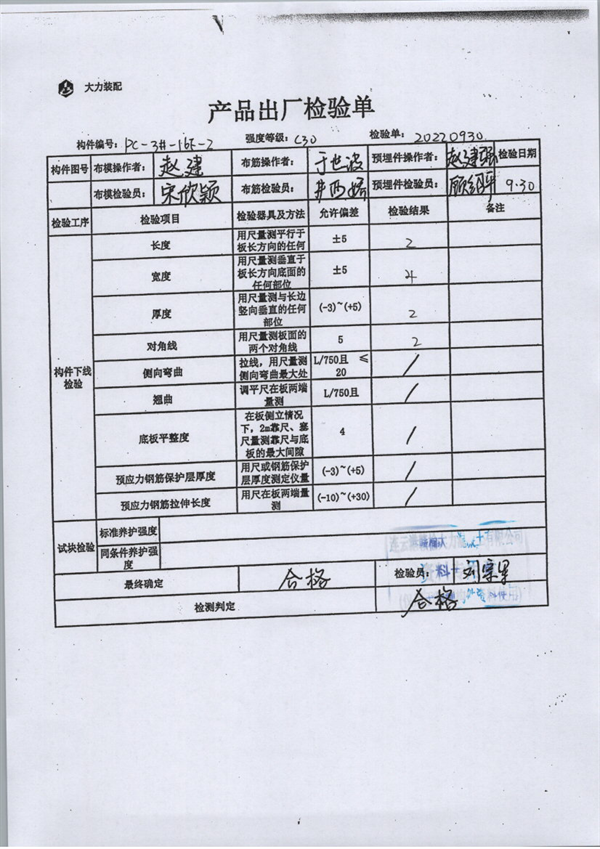 大力装配
产品出厂检验单
构件编号: PC-3#-16F-2 强度等级: C30 检验单: 20220930
构件图号 布模操作者: 赵建 布筋操作者: 于世波 预埋件操作者: 赵建 检验日期
布模检验员: 宋欣颖 布筋检验员: 预埋件检验员: 9.30
检验工序 检验项目 检验器具及方法 允许偏差 检验结果 备注
构件下线检验
长度 用尺量测平行于板长方向的任何 ±5 2
宽度 用尺量测垂直于板长方向底面的任何部位 ±5 4
厚度 用尺量测与长边竖向垂直的任何部位 (-3)~(+5) 2
对角线 用尺量测板面的两个对角线 5 2
侧向弯曲 拉线，用尺量测侧向弯曲最大处 L/750且 ≤ 20 /
翘曲 调平尺在板两端量测 L/750且 /
底板平整度 在板侧立情况下，2m靠尺、塞尺量测靠尺与底板的最大间隙 4 /
预应力钢筋保护层厚度 用尺或钢筋保护层厚度测定仪量 (-3)~(+5) /
预应力钢筋拉伸长度 用尺在板两端量测 (-10)~(+30) /
试块检验 标准养护强度
同条件养护强度
最终确定 合格 检验员:
检测判定 合格